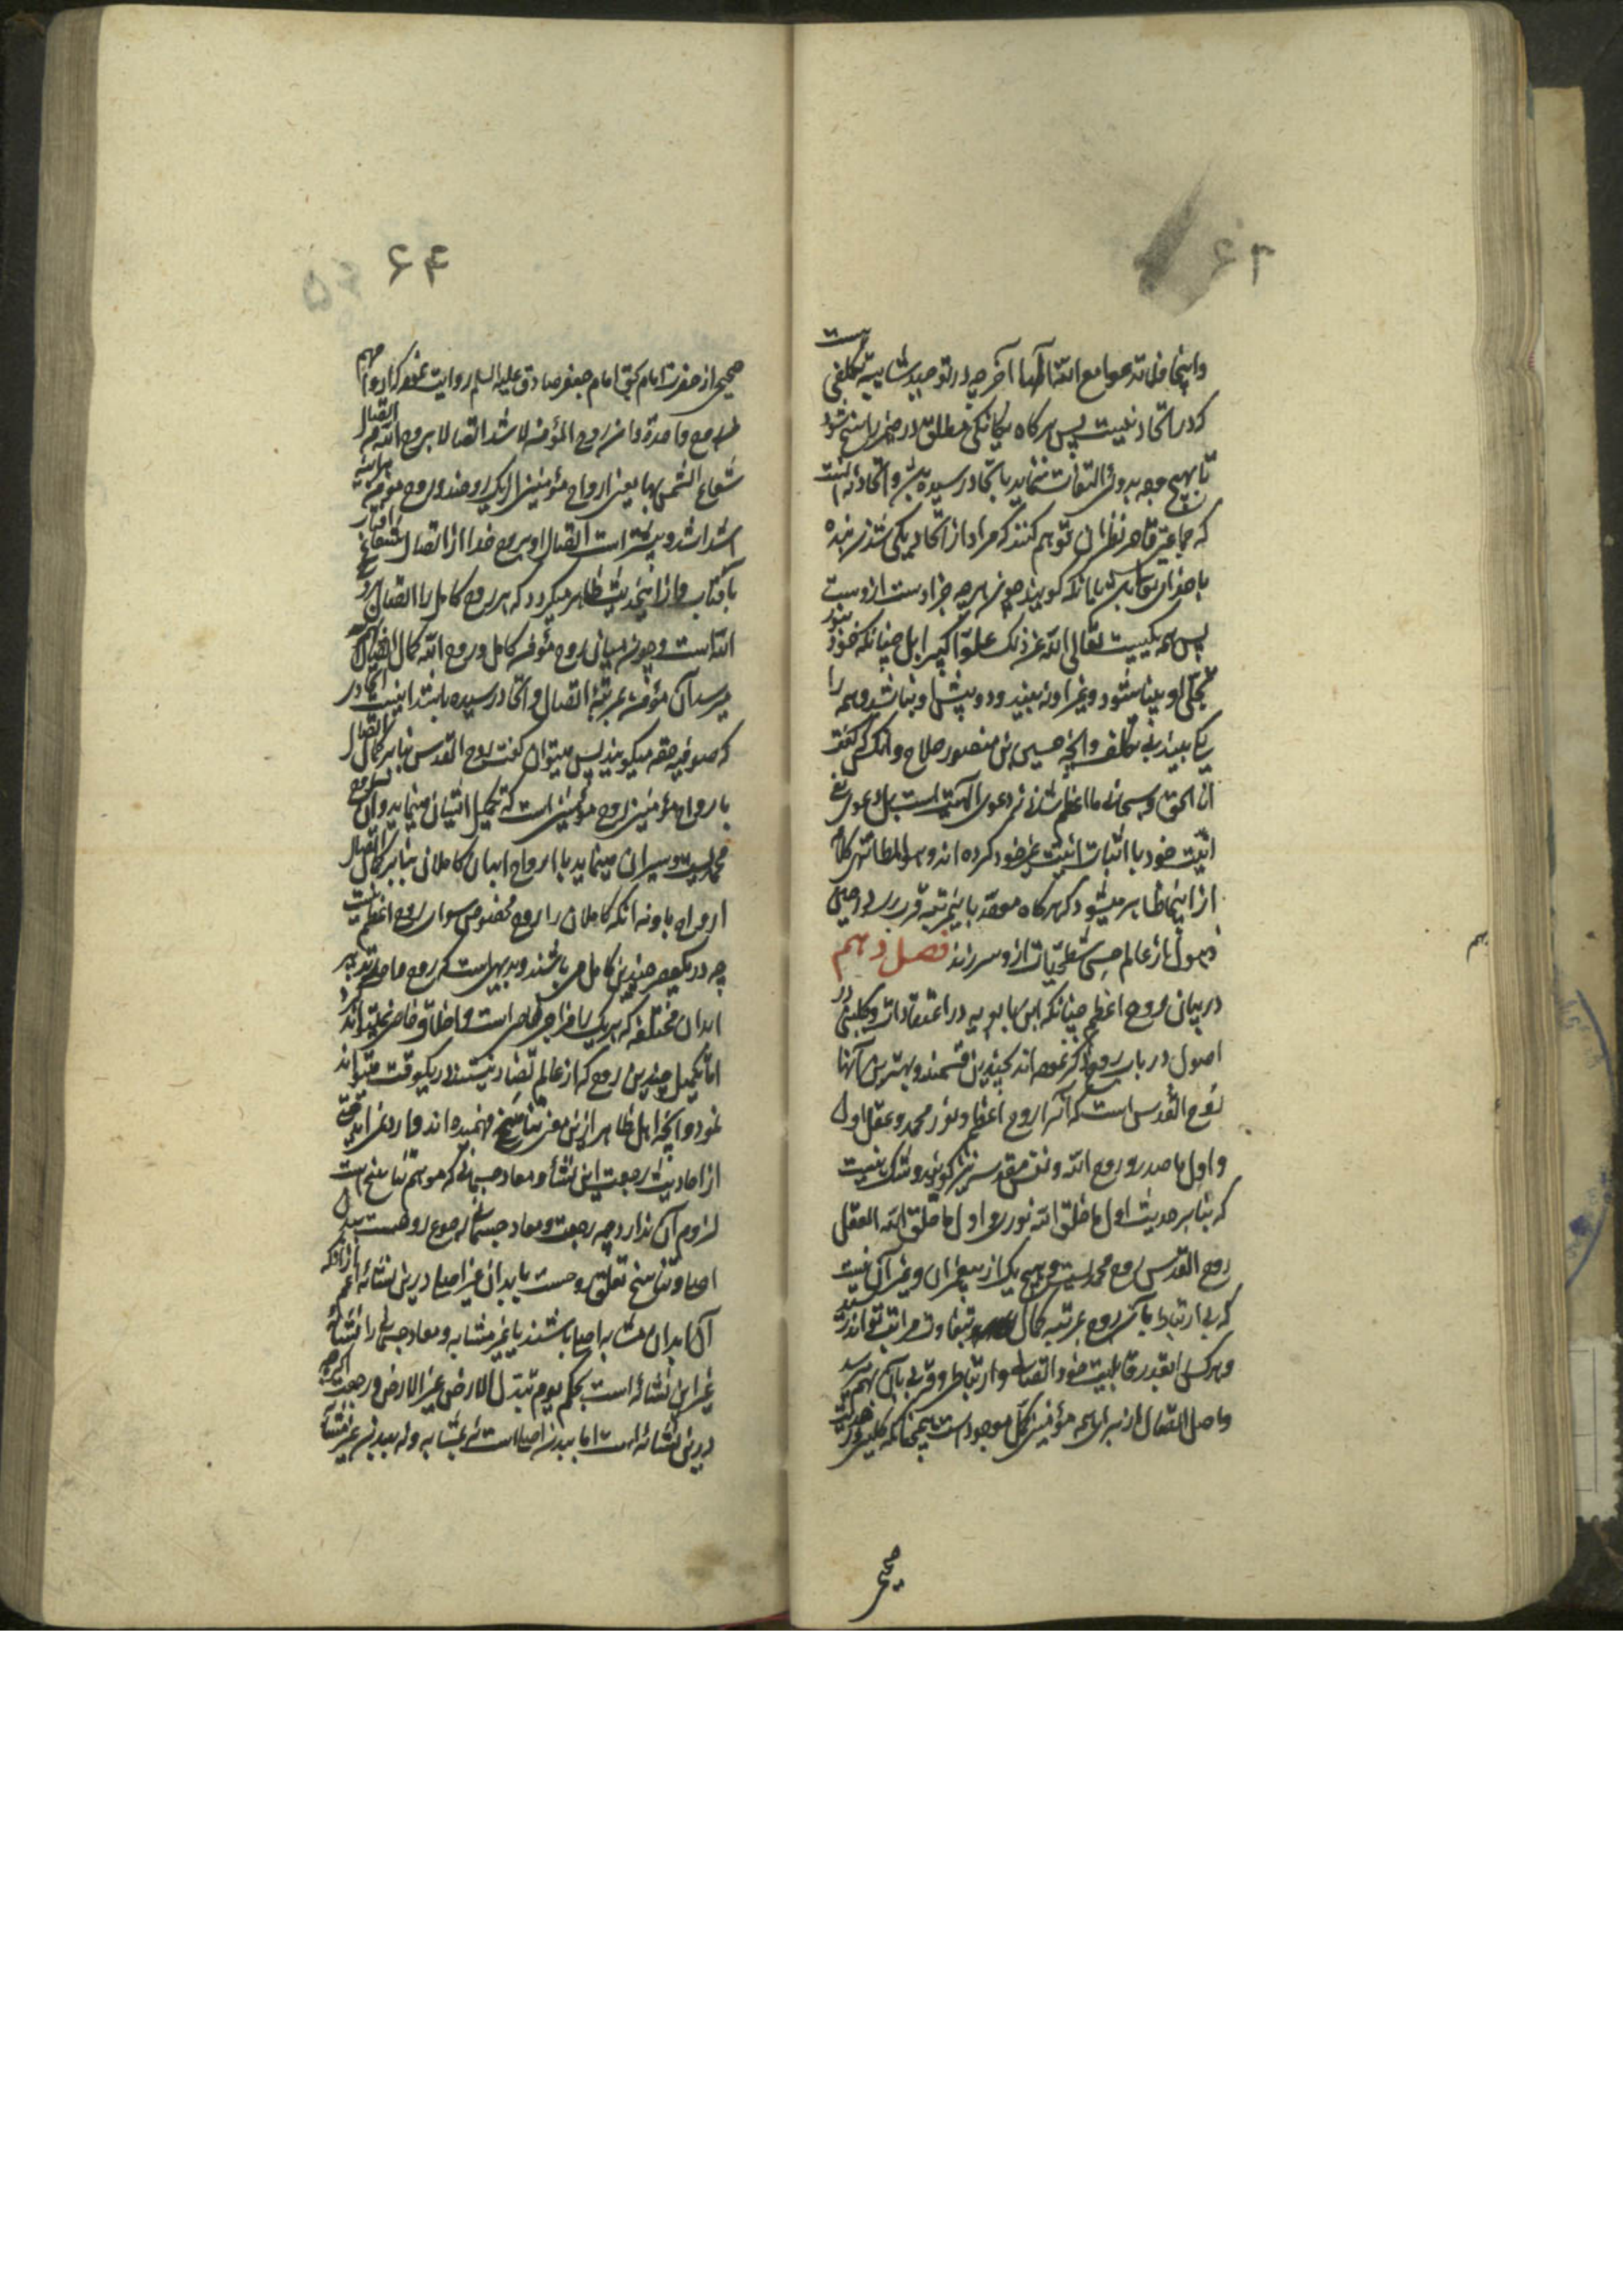 ۶۳
که در اتحاد نیست پس هرگاه یگانگی مطلق در ضمیر راسخ شود
تا بهیچ وجه بدوئی التفات ننماید باتحاد رسیده باشد و اتحاد نه آنست
که جماعتی قاصر نظران توهم کنند که مراد از اتحاد یکی شدن بنده
با خدای تعالی باشد یا آنکه گویند چون هرچه جز اوست ازوست
پس همه یکیست تعالی الله عن ذلک علوا کبیرا بل چنانکه چون بنور
تجلی او بینا شود و غیر او نه بیند و همه را
یکی بیند بی تکلف و آنچه حسین بن منصور حلاج و آنکس که گفته
انا الحق و سبحانی ما اعظم شأنی نه دعوی الهیت است بل دعوی نفی
انیت خود با اثبات انیت غیر خود کرده اند
از اینجا ظاهر میشود که هرگاه باین مرتبه قرب رسد و در حین
ذهول از عالم حس شطحیات ازو سر زند فصل دهم
در بیان روح اعظم چنانکه ابن بابویه در اعتقادات و کلینی در
اصول در باب روح ذکر نموده اند بچندین قسمند و بهترین آنها
روح القدس است که آنرا روح اعظم و نور محمد و عقل اول
و اول ما صدر و روح الله و نفس مقدسه نیز گویند و شک نیست
که بنابر حدیث اول ما خلق الله نوری و اول ما خلق الله العقل
روح القدس روح محمدیست و هیچ یک از پیغمبران و غیر آن نیست
که بی ارتباط بآن روح بمرتبه کمال بتفاوت مراتب توانند رسید
و هرکس بقدر قابلیت خود اتصال و ارتباط و قربی بآن بهم میرسد
و اصل اتصال از برای همه مؤمنین کل موجود است چنانکه کلینی در حدیث
صحیح
۶۴
صحیح از حضرت امام بحق امام جعفر صادق علیه السلام روایت نموده که ارواحهم
من روح واحدة و ان روح المؤمن لاشد اتصالا بروح الله من اتصال
شعاع الشمس بها یعنی ارواح مؤمنین از یک روحند و روح مؤمن
اشد اشد و بیشتر است اتصال او بروح خدا از اتصال شعاع آفتاب
بآفتاب و از اینحدیث ظاهر میگردد که هر روح کامل را اتصال بروح
الله است و چون میان روح مؤمن کامل و روح الله کمال اتصال
میرسد آن مؤمن بمرتبه اتصال و اتحاد رسیده باشد اینست اتحاد
که صوفیه حقه میگویند پس میتوان گفت روح القدس بنابر کمال اتصال
بارواح مؤمنین روح مؤمنین است که تکمیل ایشان مینماید و آن روح
محمدیست و سیران مینماید با ارواح ابدان کاملان بنابر کمال اتصال
ارواح باو نه آنکه کاملان را روح مخصوص سوای روح اعظم نیست
چه در یکعصر چندین کامل می باشند و بدیهی است که روح واحد تدبیر
ابدان مختلفه که هر یک را مزاجی خاص است و اخلاق خاص نمیتواند کرد
اما تکمیل چندین روح که از عالم تضاد نیستند در یکوقت میتواند
نمود و آنچه اهل ظاهر ازین معنی تناسخ فهمیده اند
از احادیث رجعت این نشأه و معاد جسمانی که موهم تناسخ است
لزوم آن ندارد چه رجعت و معاد جسمانی رجوع روحست ببدن
اصلی و تناسخ تعلق روحست بابدان غیر اصلی درین نشأه اعم از آنکه
آن ابدان مشابه اصلی باشند یا غیر مشابه و معاد جسمانی را نشأه
غیر این نشأه است بحکم یوم تبدل الارض غیر الارض و رجعت اگرچه
درین نشأه است اما ببدن اصلی است نه بمشابه و نه ببدن غیر مشابه